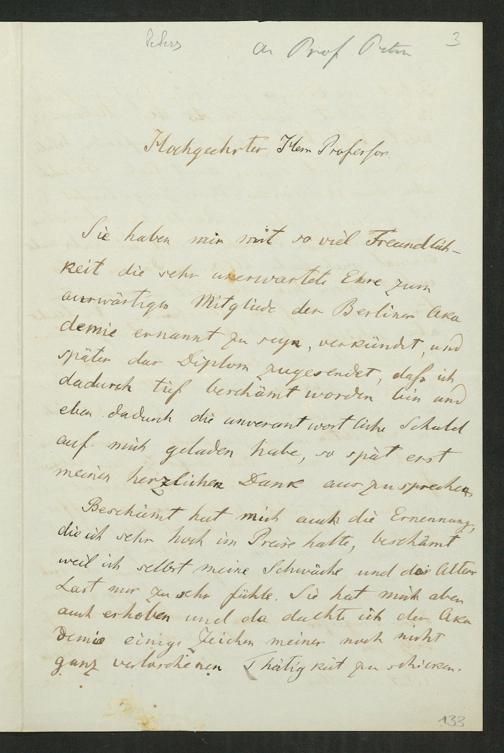 Peters an Prof Peters 3
Hochgeehrter Herr Professor
Sie haben mir mit so viel Freundlich-
keit die sehr unerwartete Ehre zum
auswärtigen Mitgliede der Berliner Aka
demie ernannt zu seyn, verkündet, und
später das Diplom zugesendet, daß ich
dadurch tief beschämt worden bin und
eben dadurch die unverantwortliche Schuld
auf mich geladen habe, so spät erst
meinen herzlichen Dank auszusprechen
Beschämt hat mich auch die Ernennung,
die ich sehr hoch im Preise halte, beschämt
weil ich selbst meine Schwäche und des Alters
Last nur zu sehr fühle. Sie hat mich aber
auch erhoben und da dachte ich der Aka
demie einige Zeichen meiner noch nicht
ganz verloschenen Thätigkeit zu schicken.
133